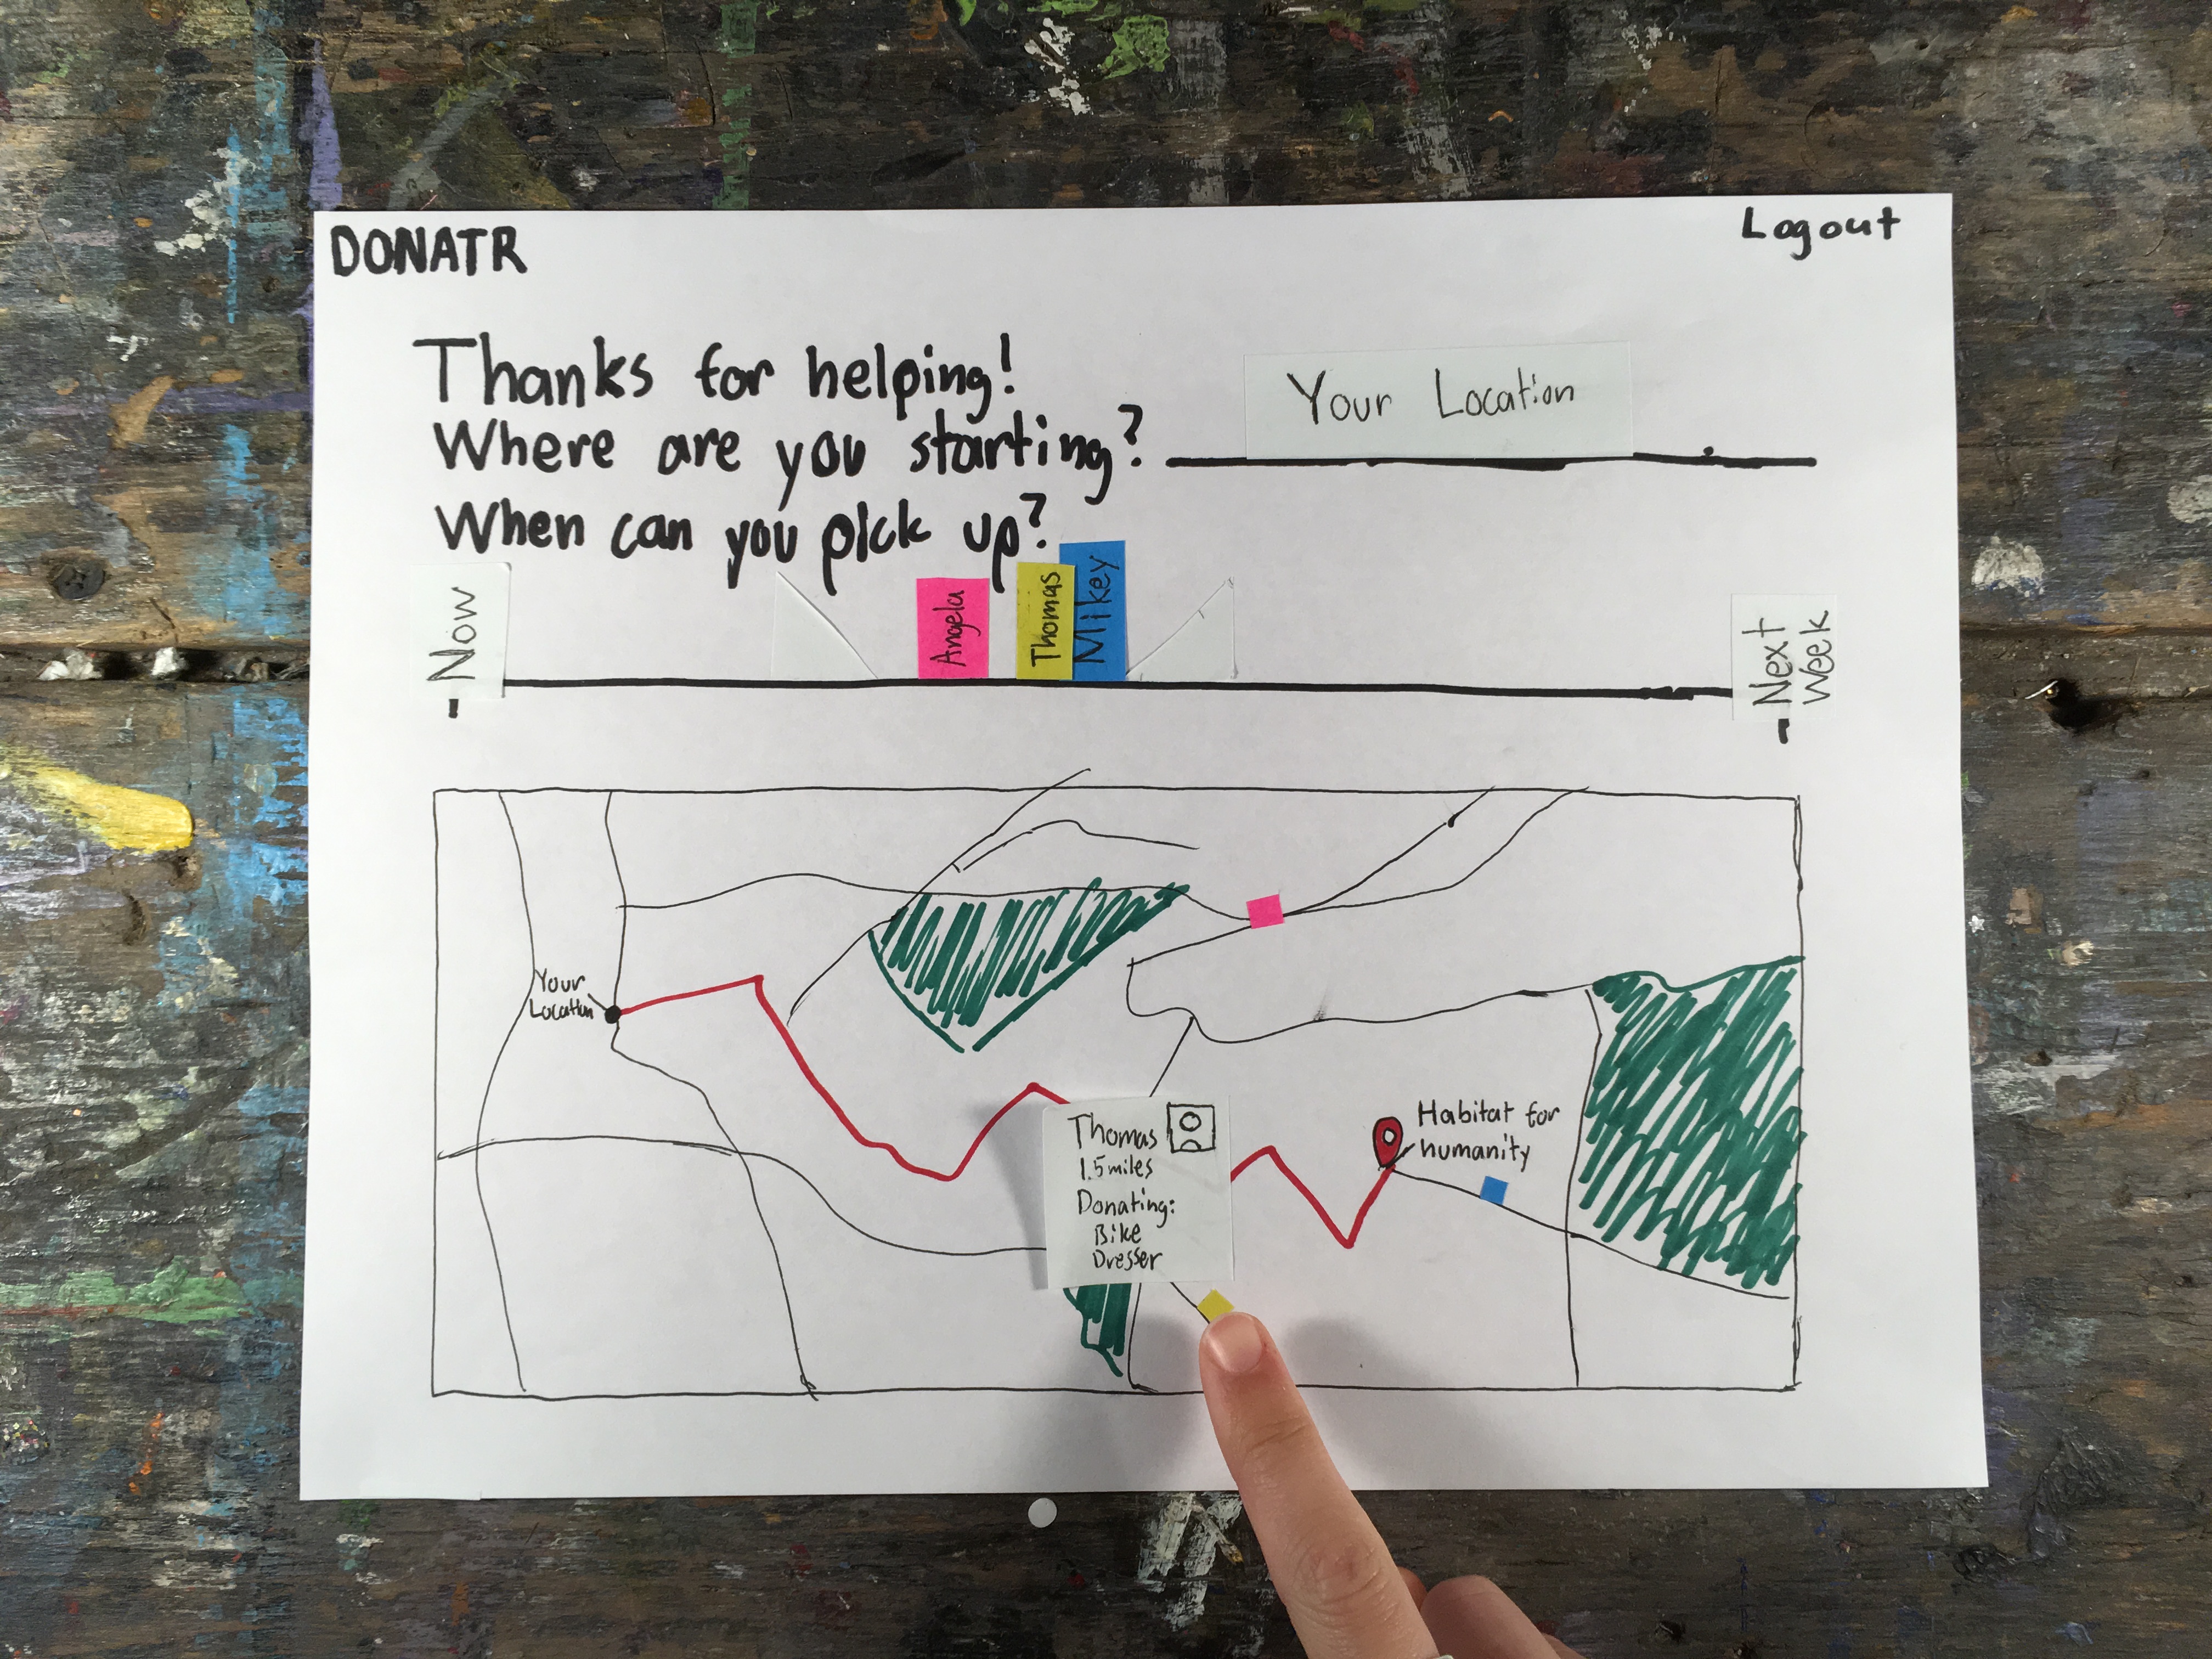 DONATR
Logout
Thanks for helping!
Where are you starting?
Your Location
When can you pick up?
Now
Angela
Thomas
Mikey
Next
Week
Your
Location
Thomas
1.5 miles
Donating:
Bike
Dresser
Habitat for
humanity